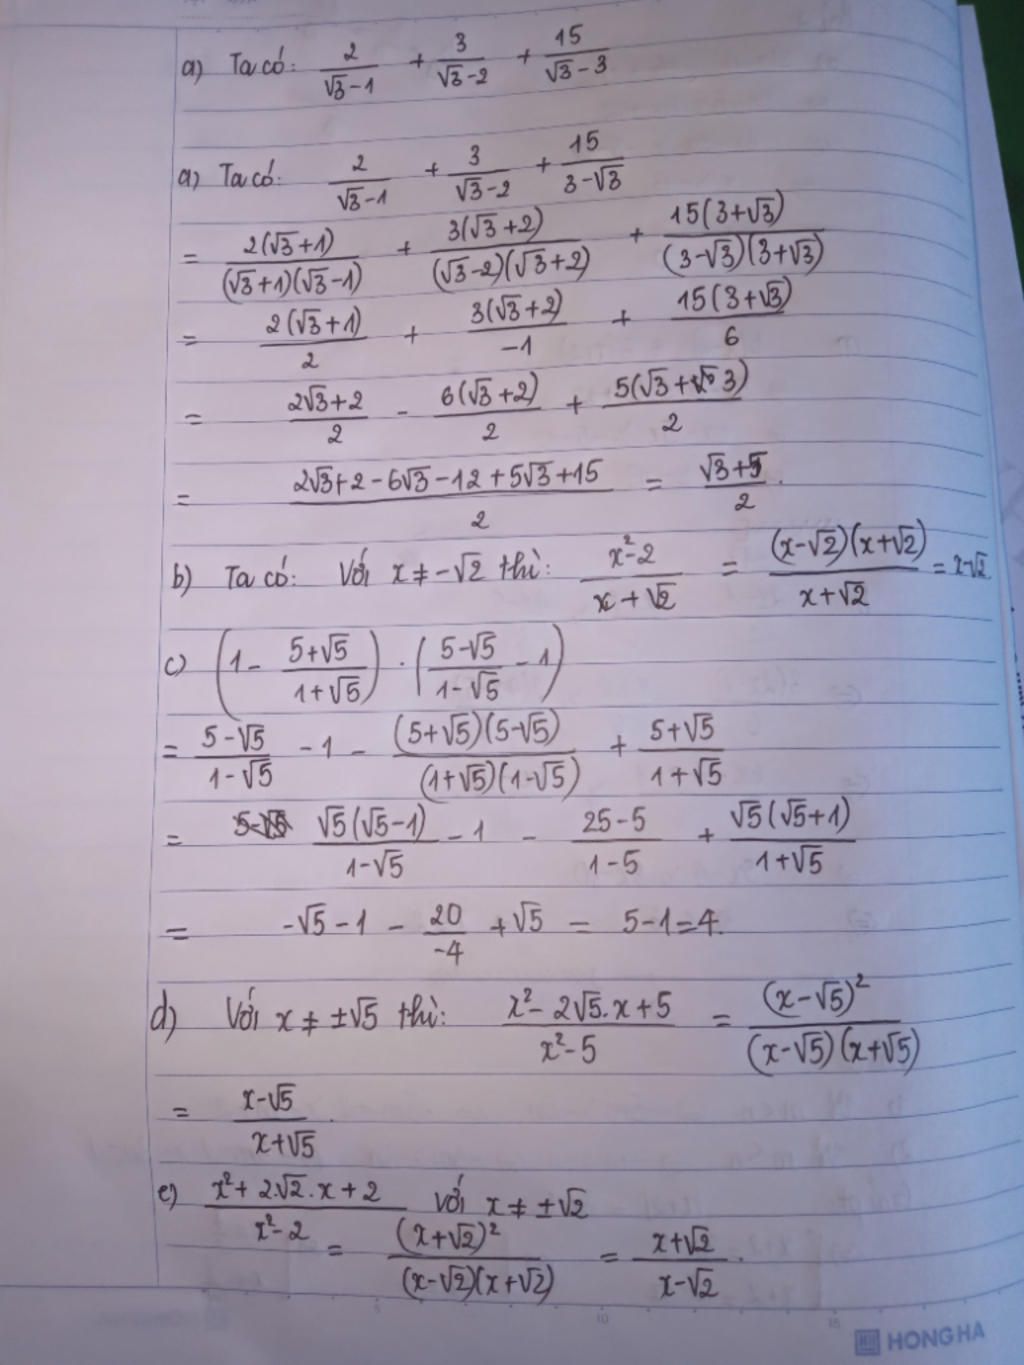 a) Ta có: 2/(√3-1) + 3/(√3-2) + 15/(√3-3)
a) Ta có: 2/(√3-1) + 3/(√3-2) + 15/(3-√3)
= 2(√3+1)/((√3+1)(√3-1)) + 3(√3+2)/((√3-2)(√3+2)) + 15(3+√3)/((3-√3)(3+√3))
= 2(√3+1)/2 + 3(√3+2)/-1 + 15(3+√3)/6
= (2√3+2)/2 - 6(√3+2)/2 + 5(√3+3)/2
= (2√3+2-6√3-12+5√3+15)/2 = (√3+5)/2.
b) Ta có: Với x ≠ -√2 thì: (x²-2)/(x+√2) = (x-√2)(x+√2)/(x+√2) = x-√2
c) (1 - (5+√5)/(1+√5)) . ((5-√5)/(1-√5) - 1)
= (5-√5)/(1-√5) - 1 - (5+√5)(5-√5)/((1+√5)(1-√5)) + (5+√5)/(1+√5)
= √5(√5-1)/(1-√5) - 1 - (25-5)/(1-5) + √5(√5+1)/(1+√5)
= -√5-1 - 20/-4 + √5 = 5-1=4.
d) Với x ≠ ±√5 thì: (x²-2√5.x+5)/(x²-5) = (x-√5)²/((x-√5)(x+√5))
= (x-√5)/(x+√5).
e) (x²+2.√2.x+2)/(x²-2) với x ≠ ±√2
= (x+√2)²/((x-√2)(x+√2)) = (x+√2)/(x-√2).
5 10 15
HONG HA